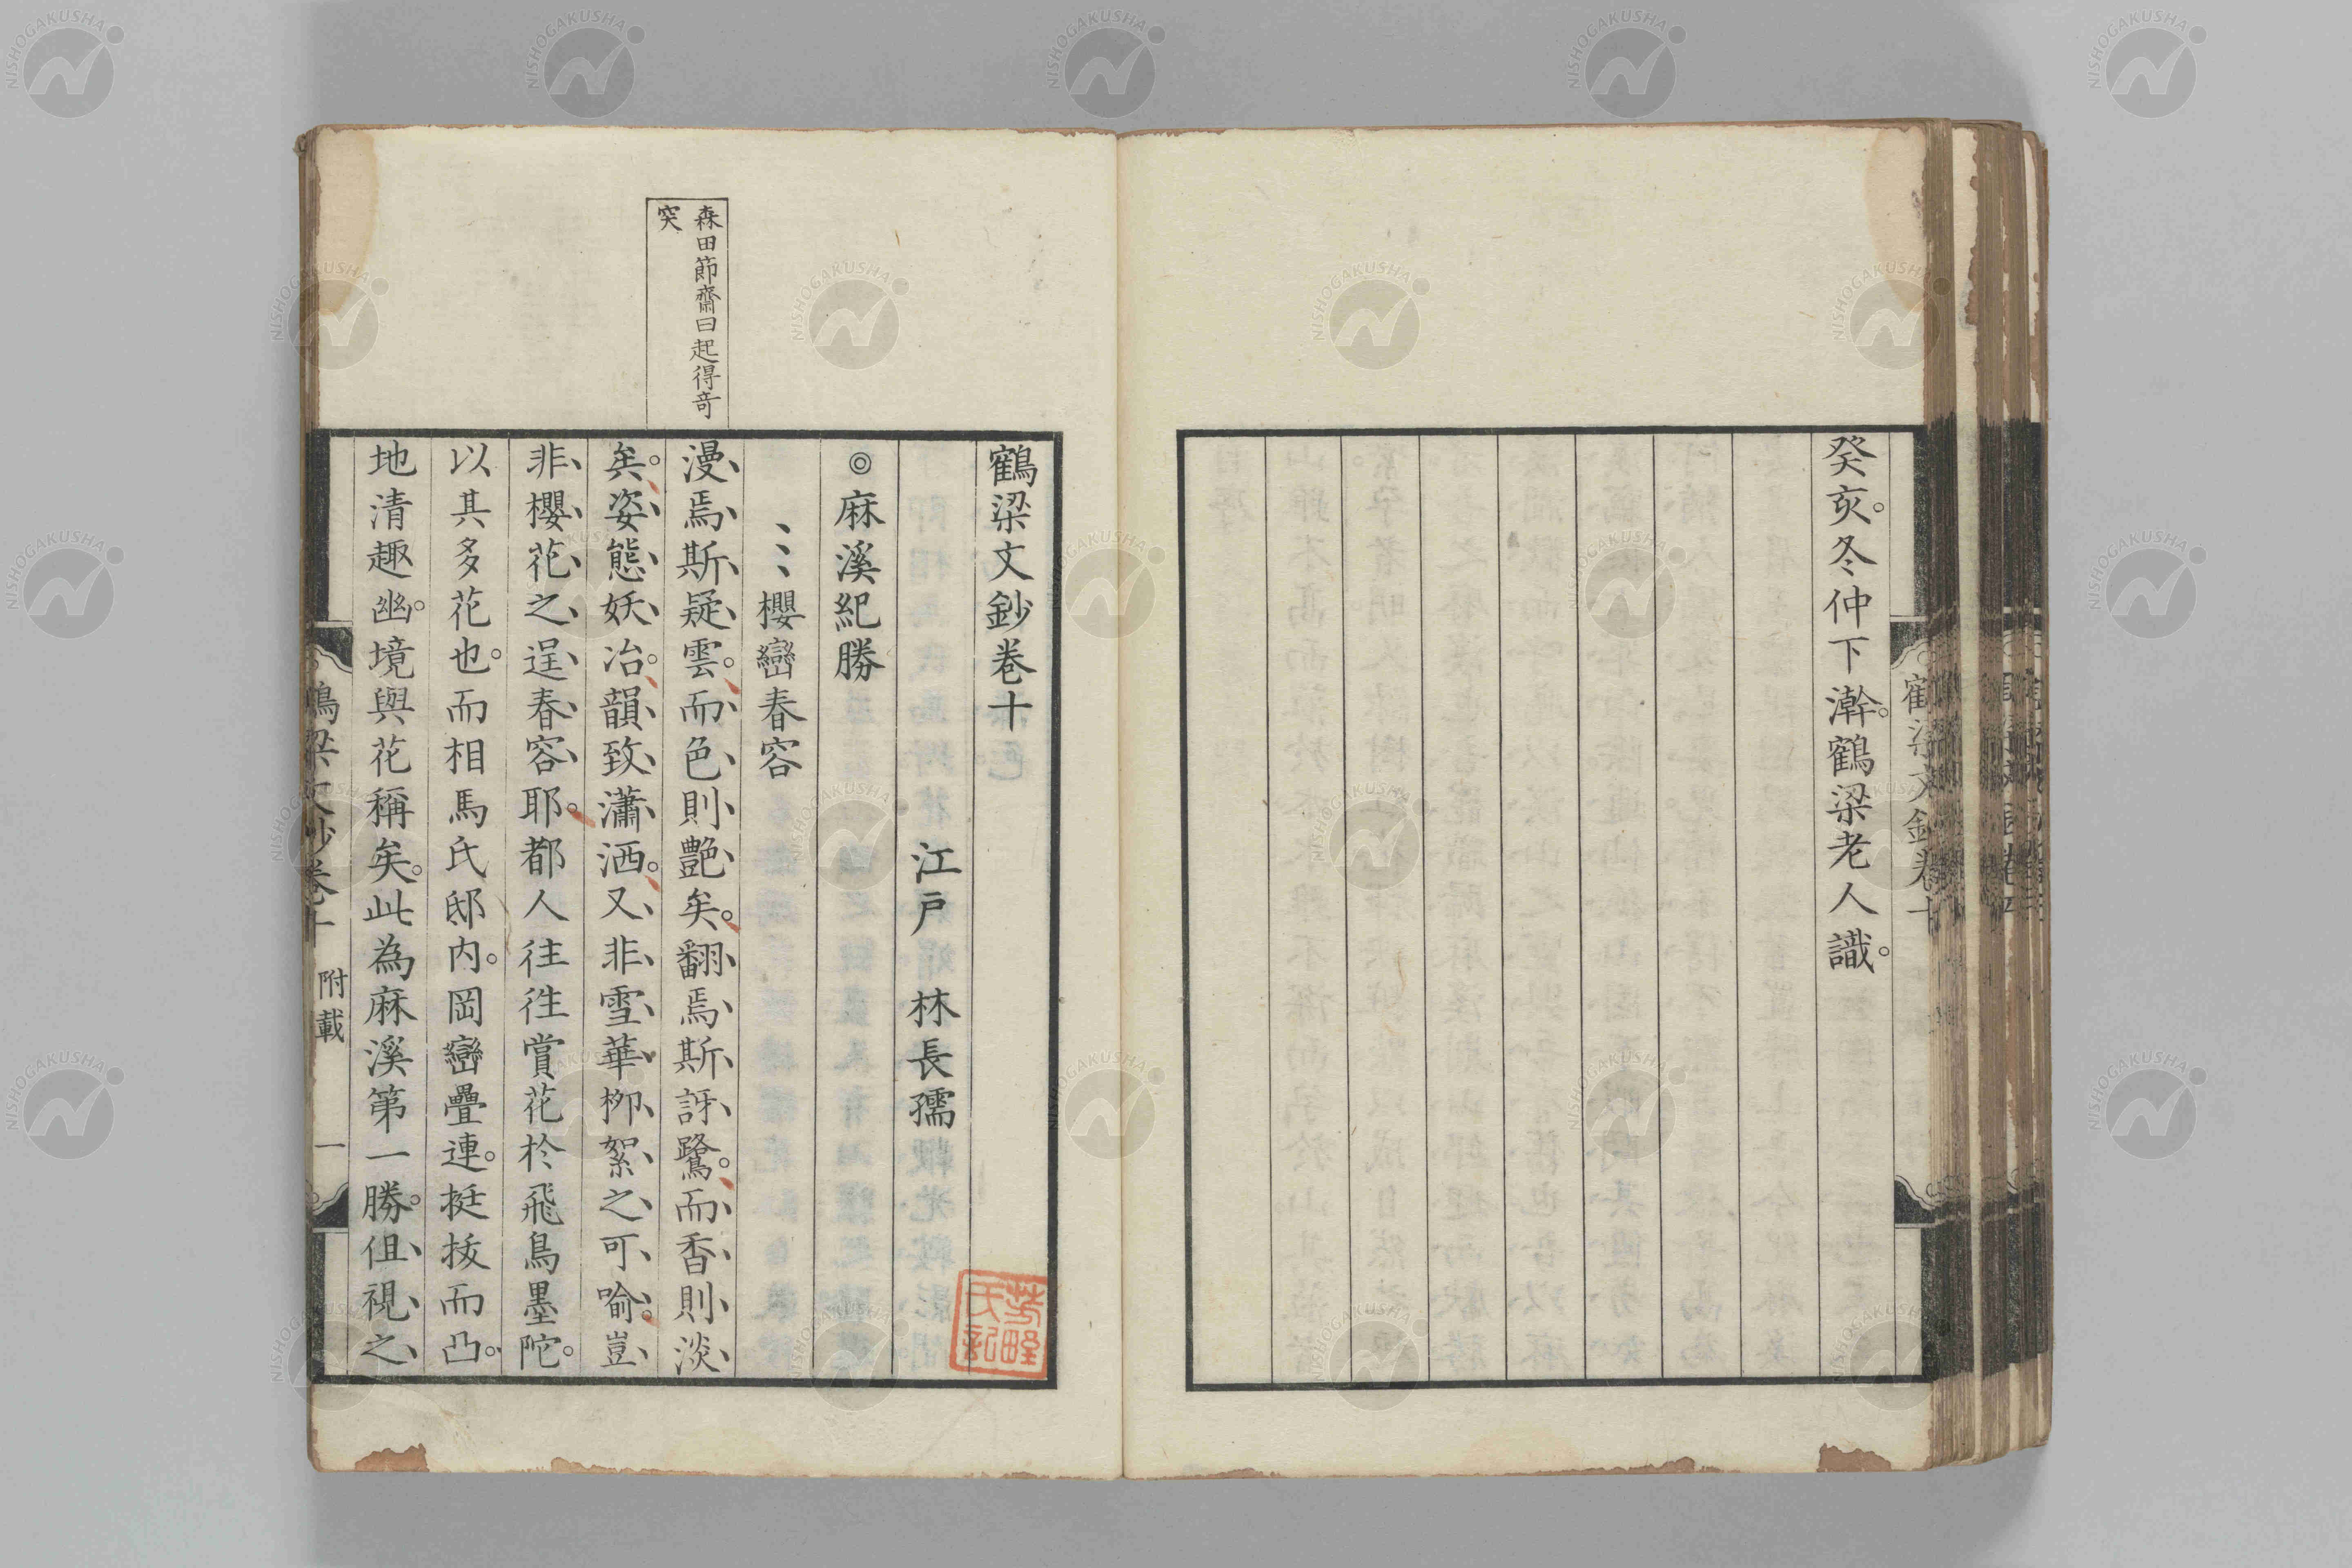 癸亥。冬仲下澣。鶴梁老人識。
鶴梁文鈔卷十
鶴梁文鈔卷十
江戸 林長孺
◎麻溪紀勝
櫻巒春容
森田節齋曰起得奇
突
漫焉斯疑雲。而色則艷矣。翻焉斯訝鷺。而香則淡
矣。姿態妖冶。韻致瀟洒。又非雪華柳絮之可喻。豈
非櫻花之逞春容耶。都人往往賞花於飛鳥墨陀。
以其多花也。而相馬氏邸內。岡巒疊連。挺拔而凸。
地清趣幽。境與花稱矣。此為麻溪第一勝。但視之
鶴梁文鈔卷十 附載 一
NISHOGAKUSHA